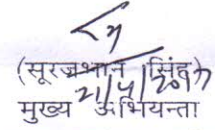 (सूरजभान सिंह)
21/4/2017
मुख्य अभियन्ता